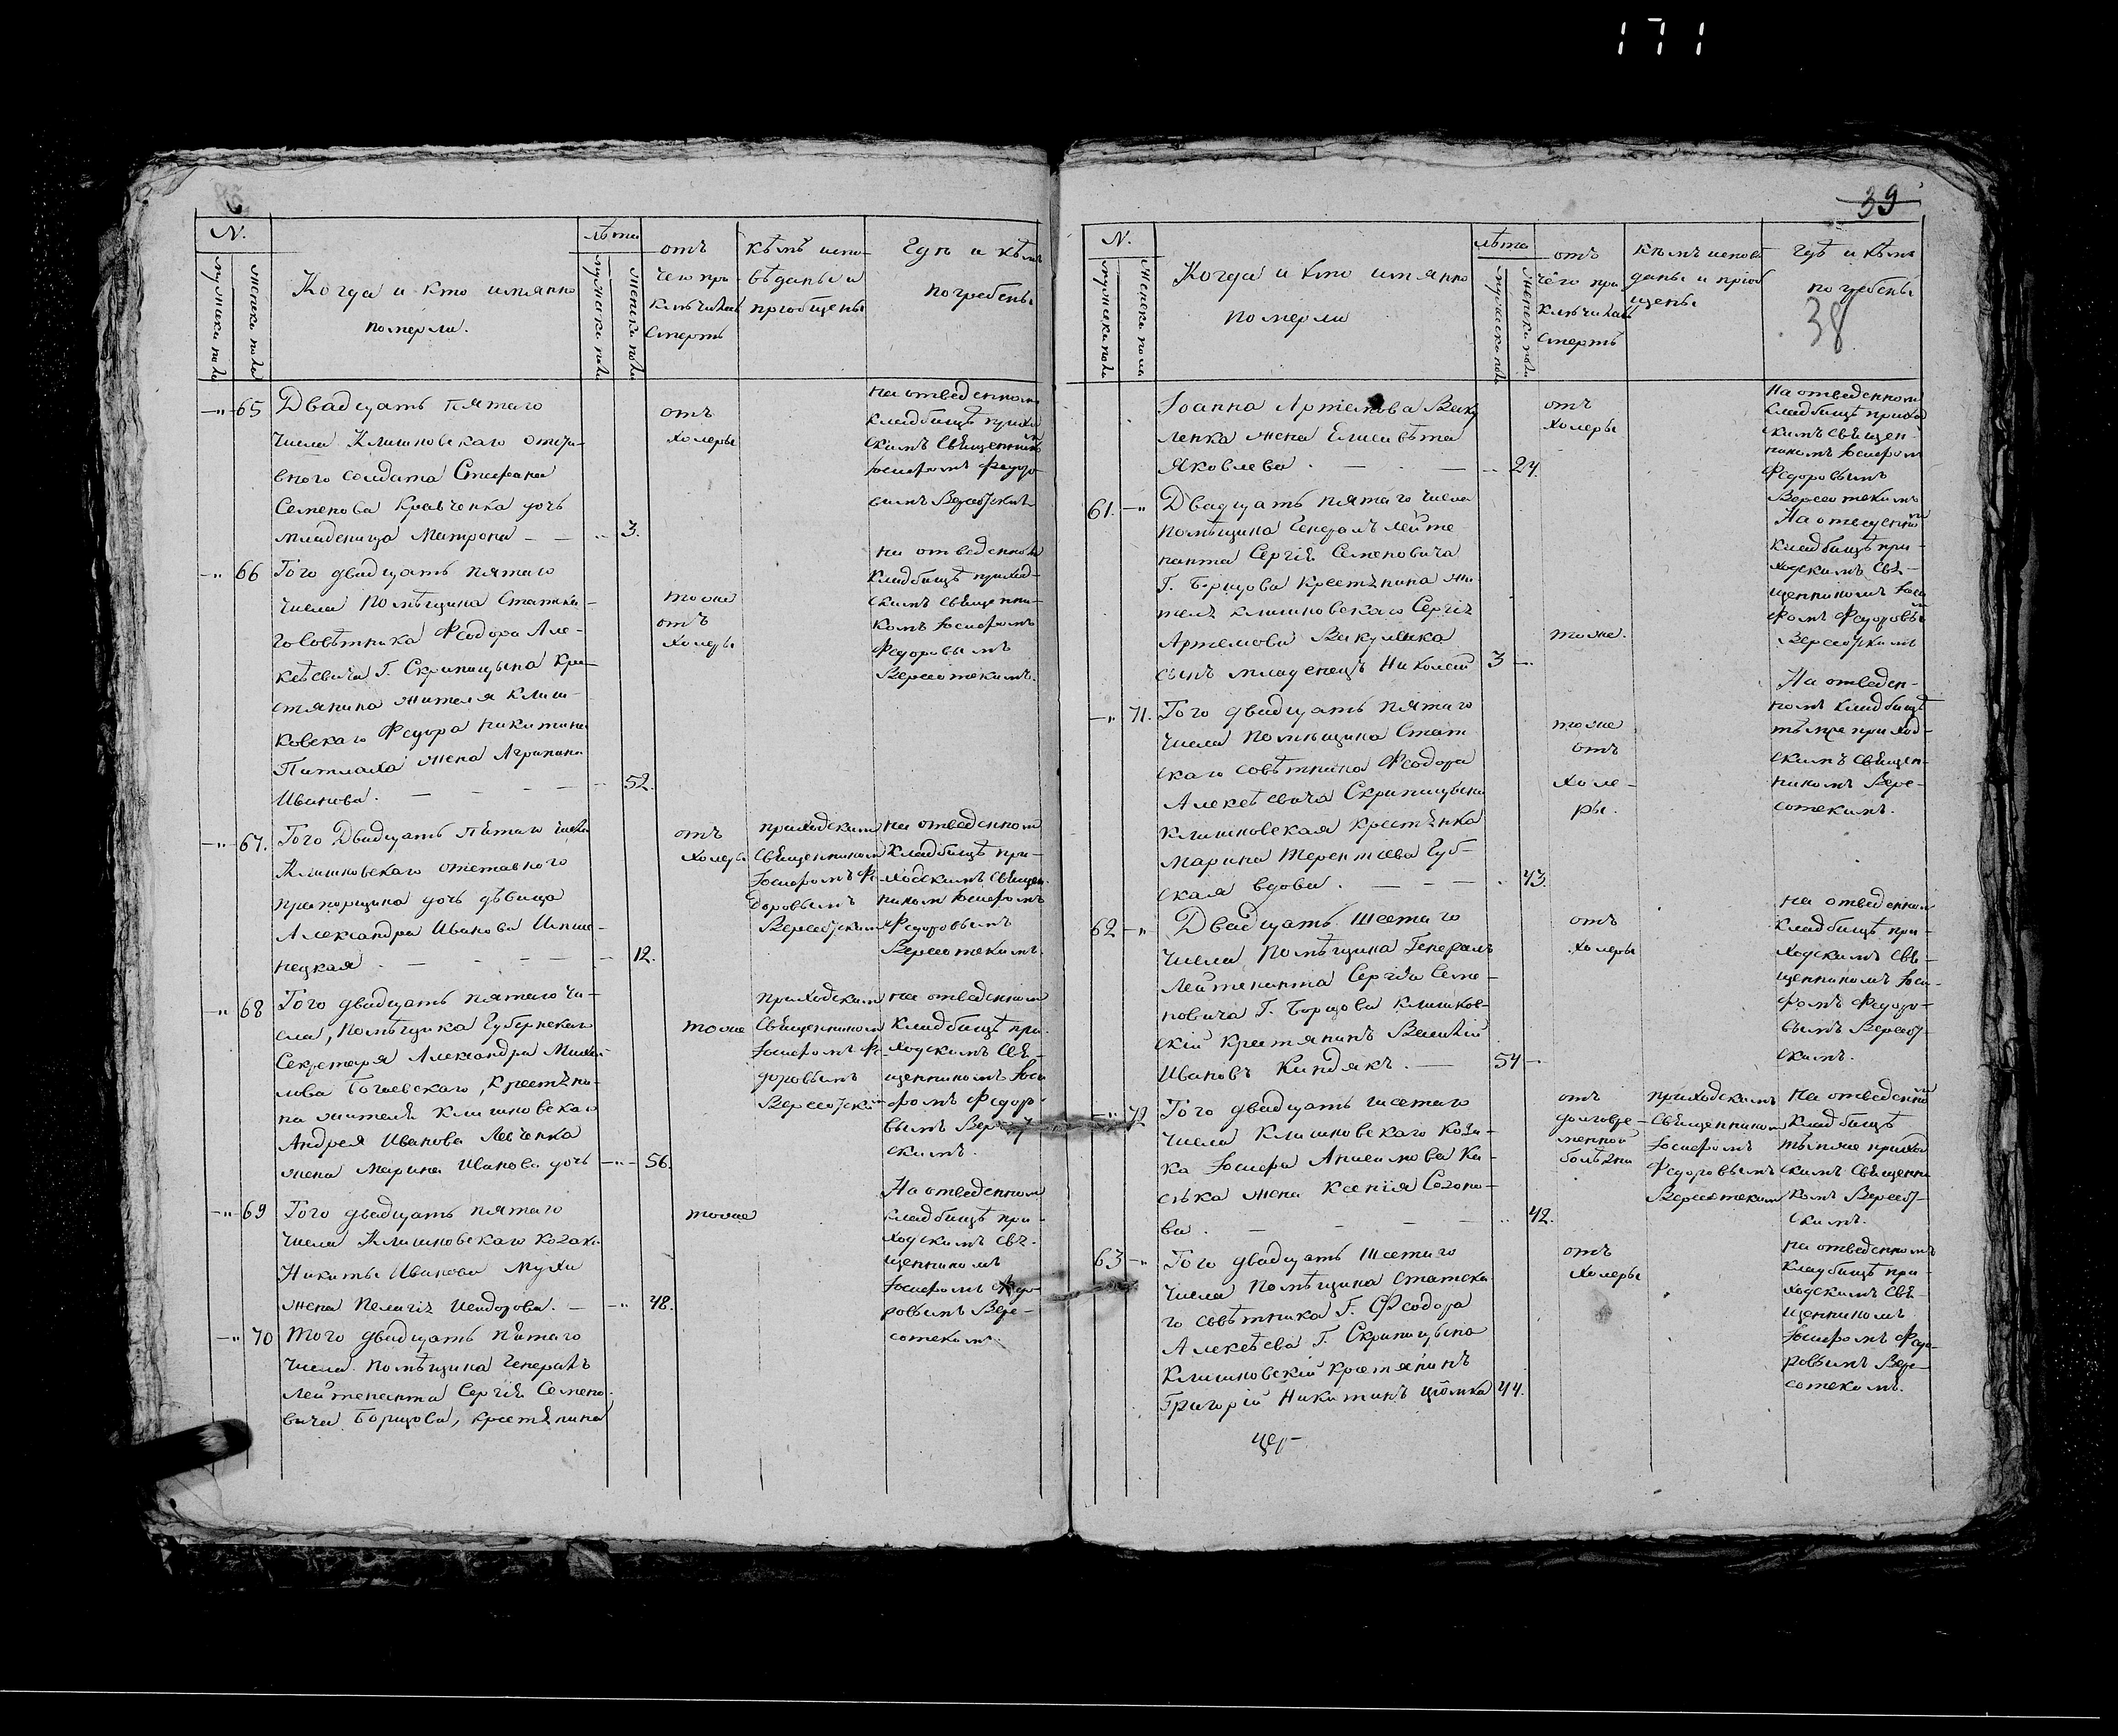 171
N.
мужеска пола
женска пола
Когда и кто имянно
померли.
лѣта
мужеска пола
женска пола
отъ
чего при-
ключилась
смерть
кѣмъ испо-
вѣданы и
пріобщены
Гдѣ и кѣмъ
погребены
65 Двадцать пятаго
числа Клишковскаго отста-
вного солдата Стефана
Семенова Кравченка дочь
младеница Матрона — — 3.
отъ
холеры
на отведенномъ
кладбищѣ приход
скимъ Священник
Іосифомъ Федоро-
вымъ Версотскимъ
66 Того двадцать пятаго
числа Помѣщика Статска-
го Совѣтника Феодора Але-
ксѣевича Г. Скрипицына кре-
стянина жителя Клиш-
ковскаго Федора Никитина
жена Агрипина
Иванова. — — — 52.
тоже
отъ
холеры
на отведенномъ
кладбищѣ приход-
скимъ Священни-
комъ Іосифомъ
Федоровымъ
Версотскимъ.
67. Того Двадцать пятаго числа
Клишковскаго отставного
прапорщика дочь дѣвица
Александра Иванова
нецкая — — — 12.
отъ
холеры
приходскимъ
Священникомъ
Іосифомъ Фе
доровымъ
Версотскимъ
на отведенномъ
кладбищѣ при-
ходскимъ Священ-
никомъ Іосифомъ
Федоровымъ
Версотскимъ.
68 Того двадцать пятаго чи-
сла, Помѣщика Губернскаго
Секретаря Александра Михай-
лова крестяни-
на жителя Клишковскаго
Андрея Иванова Левченка
жена Марина Иванова дочь — 56.
тоже
приходскимъ
Священникомъ
Іосифомъ Фе-
доровымъ
Версотский
на отведенномъ
кладбищѣ при-
ходскимъ Свя-
щенникомъ Іоси
фомъ Федор-
вымъ Верс
скимъ.
69 Того двадцать пятаго
числа Клишковскаго козака
Никиты Иванова Мухи
жена Пелагія Исидорова. — 48.
тоже
На отведенномъ
кладбищѣ при-
ходскимъ Свя-
щенникомъ
Іосифомъ Федо-
ровымъ Верс-
сотским.
70 того двадцать пятаго
числа помѣщика Генералъ
Лейтенанта Сергія Семено-
вича Борщова, крестянина
39
38
N.
мужеска пола
женска пола
Когда и кто имянно
померли
лѣта
мужеска пола
женска пола
отъ
чего при-
ключилась
смерть
кѣмъ испов
даны и пріоб
щены
Гдѣ и кѣмъ
погребены
Іоанна Артемова Ваку
ленка жена Елисавета
Яковлева. — — 24.
отъ
холеры
На отведенномъ
кладбищѣ приход
скимъ Священ-
никомъ Іосифом
Федоровымъ
Версотскимъ
61. Двадцать пятаго числа
помѣщика Генералъ Лейте
нанта Сергія Семеновича
Г. Борщова крестянина жи
теля Клишковскаго Сергія
Артемова Вакуленка
сынъ младенецъ Николай 3
тоже.
На отведенно
кладбищѣ при-
ходскимъ Свя-
щенникомъ Іоси
фомъ Федоровы
Версотскимъ
71. Того двадцать пятаго
числа помѣщика Стат
скаго совѣтника Феодора
Алексѣевича Скрипицына
Клишковская крестянка
Марина Терентіева Губ-
ская вдова. — — — 43.
тоже
отъ
холе-
ры.
На отведен-
номъ кладбищѣ
тѣмже приход-
скимъ Священ-
никомъ Вере-
сотскимъ.
62 Двадцать шестаго
числа Помѣщика Генералъ
Лейтенанта Сергія Семе-
новича Г. Борщова Клишков-
скій крестянинъ Василій
Ивановъ Киндякъ. — 54
отъ
холеры
на отведенномъ
кладбищѣ при-
ходскимъ Свя-
щенникомъ Іоси-
фомъ Федоро-
вымъ Версот-
скимъ.
72 Того двадцать шестаго
числа Клишковскаго Коза-
ка Іосифа Анисимова Ки-
жена Ксенія Созоно-
ва. — — — 42.
отъ
долговре-
менной
болѣзни
приходскимъ
Священником
Іосифомъ
Федоровымъ
Версотским
На отведенно
кладбищѣ
тѣмже приход
скимъ Священни
комъ Версот-
скимъ.
63 Того двадцать шестаго
числа Помѣщика Статска
го совѣтника Г. Феодора
Алексѣева Г. Скрипицына
Клишковскій крестянинъ
Григорій Никитинъ Ціомка 44.
отъ
холеры
на отведенномъ
кладбищѣ при-
ходскимъ Свя-
щенникомъ
Іосифомъ Федо-
ровымъ Вере-
сотскимъ.
Цер-